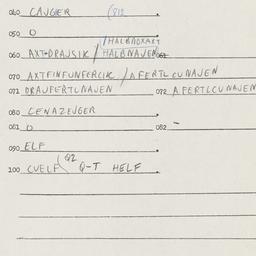 040 CAJGER (812
050 O
/HALBAOXART
060 AXT+DRAJSIK / HALBNAJEN 061
070 AXTFINFUNFERCIK /AFERTLCUNAJEN
071 DRAJFERTLNAJEN 072 AFERTLCUNAJEN
080 CENAZEJGER
081 O 082 -
090 ELF
100 CVELF (92 Q-T HELF